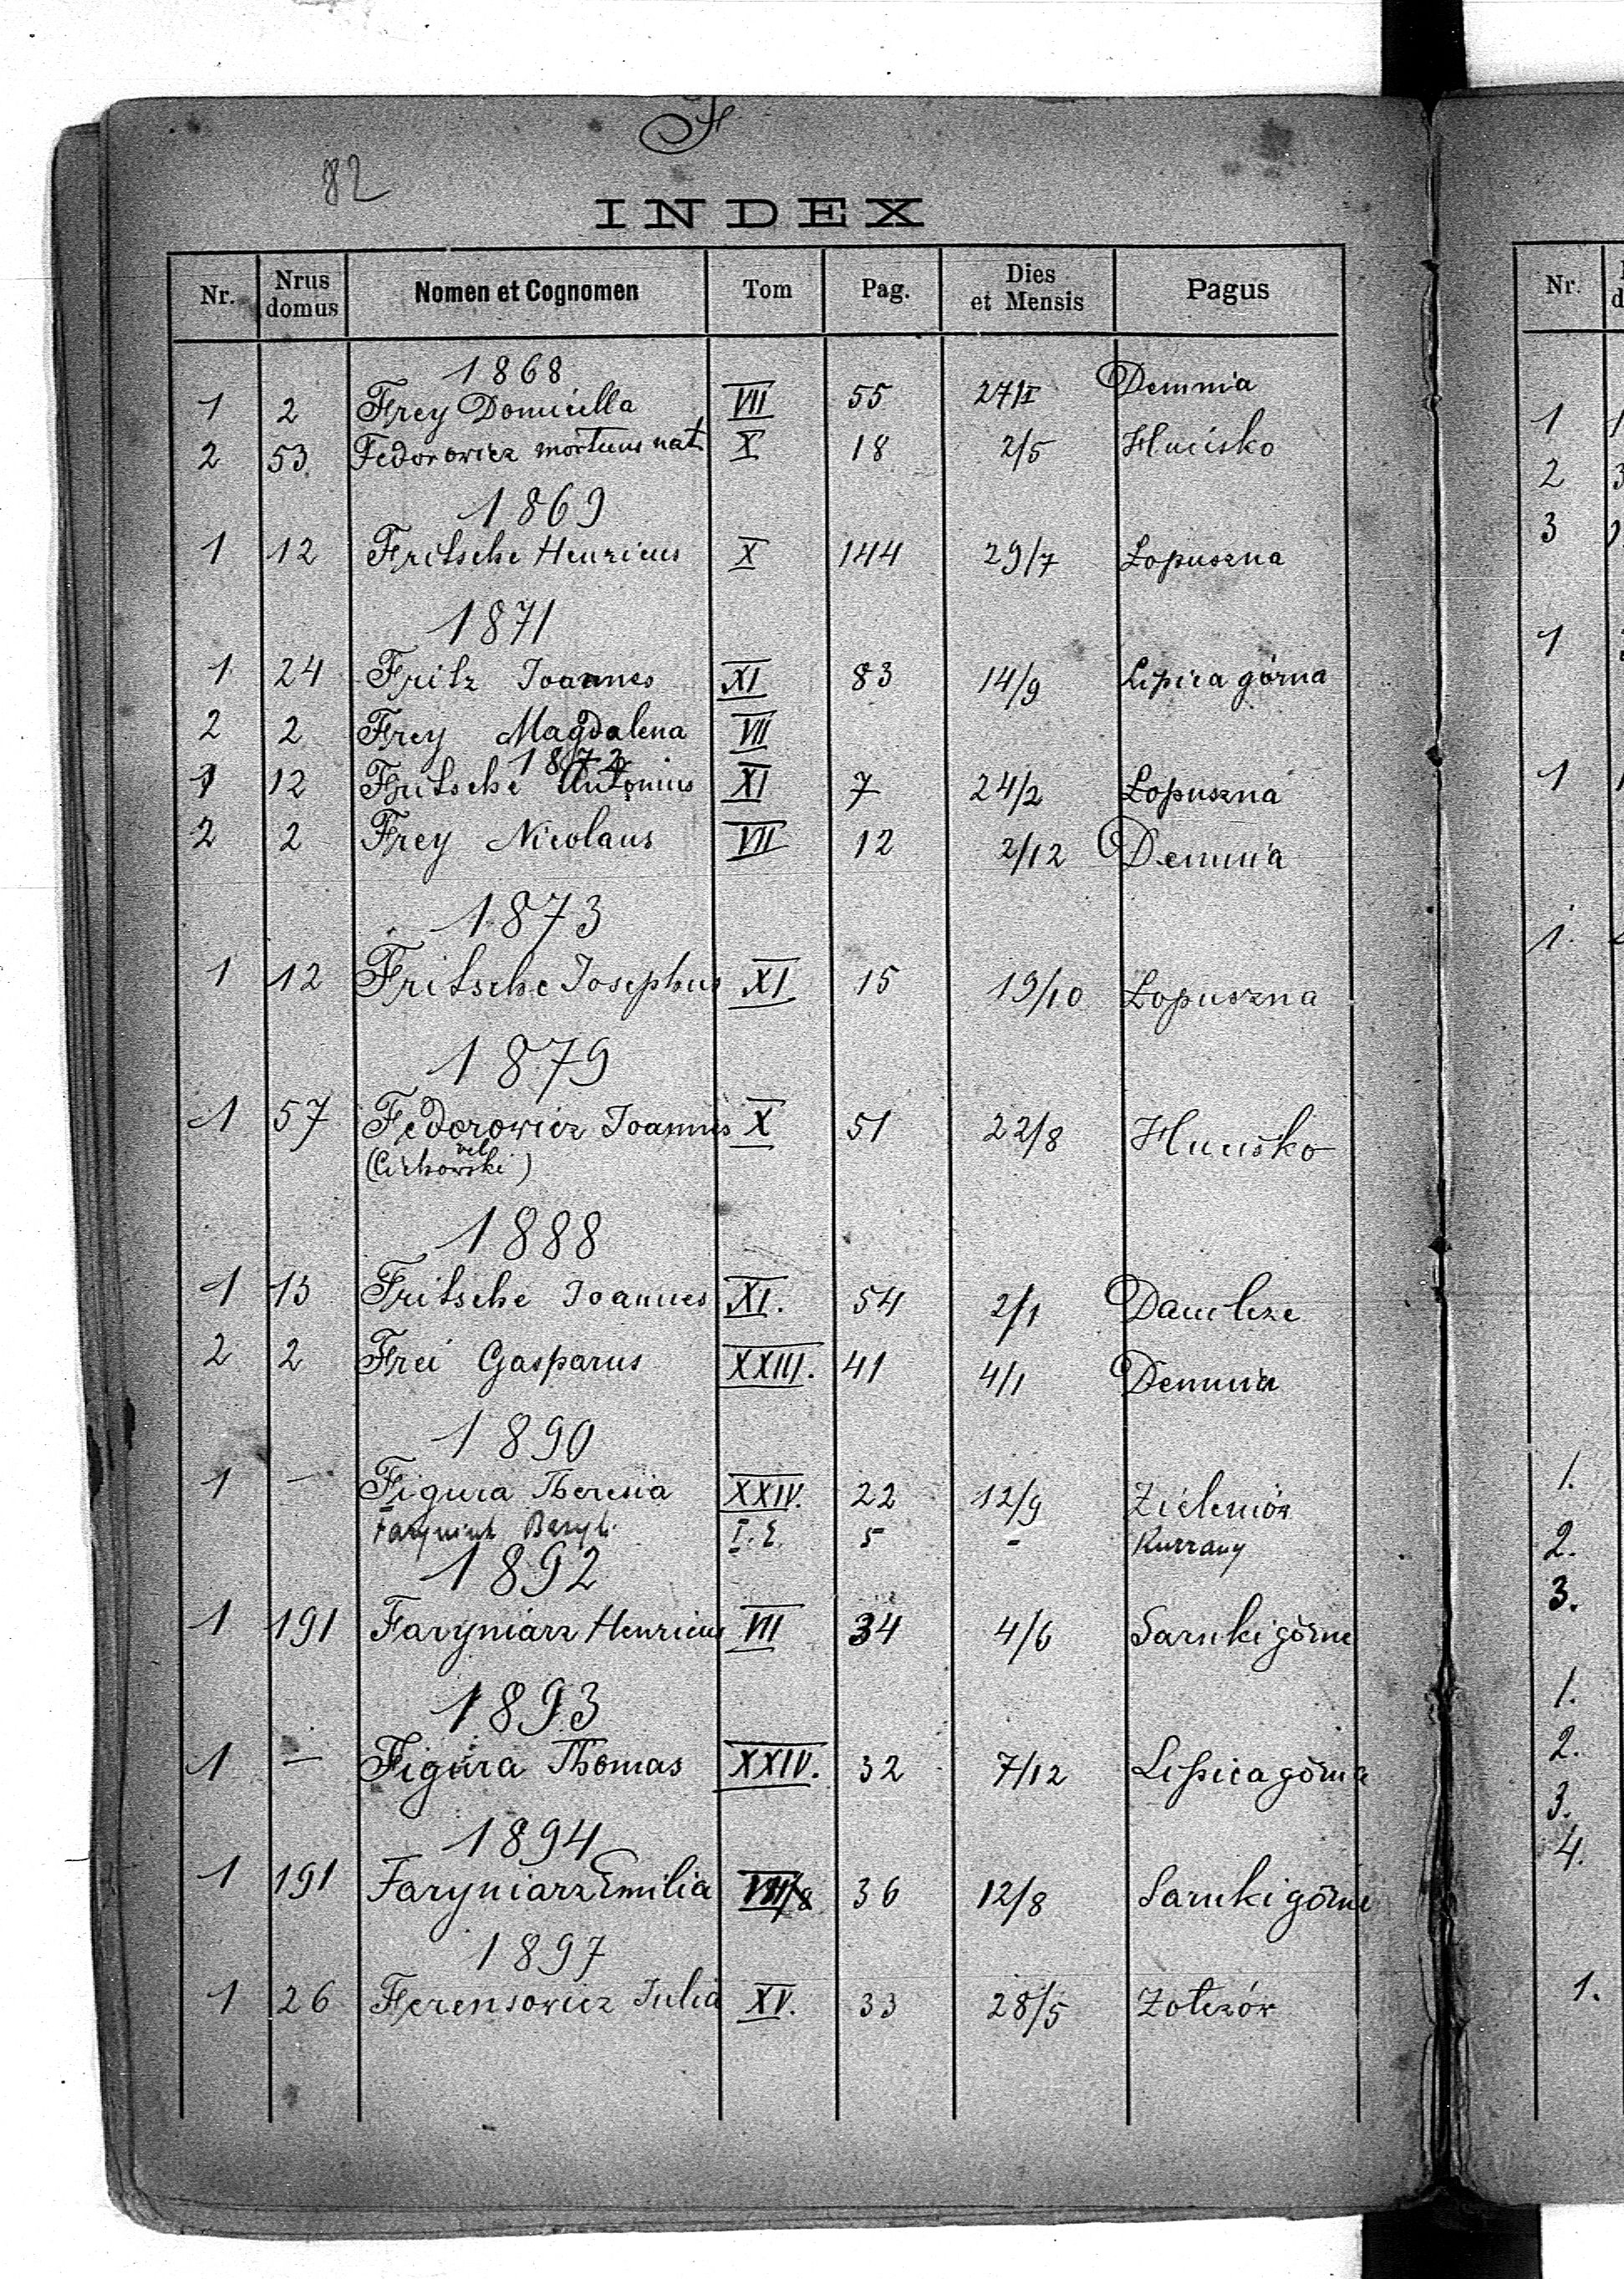 F
82
INDEX
Nr. Nrus domus Nomen et Cognomen Tom Pag. Dies et Mensis Pagus
1868
1 2 Frey Domicella VII 55 27/I Demnia
2 53 Fedorowicz mortuus nat. X 18 2/5 Hucisko
1869
1 12 Fritsche Henricus X 144 29/7 Lopuszna
1871
1 24 Fritz Joannes XI 83 14/9 Lipica górna
2 2 Frey Magdalena VII
1872
1 12 Fritsche Antonius XI 7 24/2 Lopuszna
2 2 Frey Nicolaus VII 12 2/12 Demnia
1873
1 12 Fritsche Josephus XI 15 19/10 Lopuszna
1879
1 57 Fedorowicz Joannes X 51 22/8 Hucisko
vel
(Cichowski)
1888
1 13 Fritsche Joannes XI. 54 2/1 Danilcze
2 2 Frei Gasparus XXIII. 41 4/1 Demnia
1890
1 — Figura Theresia XXIV. 22 12/9 Zieleniów
Baryl. I. E. 5 - Kurzany
1892
1 191 Faryniarz Henricus VII 34 4/6 Sarnki górne
1893
1 — Figura Thomas XXIV. 32 7/12 Lipica górna
1894
1 191 Faryniarz Emilia 36 12/8 Sarnki górne
1897
1 26 Ferensowicz Julia XV. 33 28/5 Zołczów
Nr.
1
2
3
1
1
1.
1.
2.
3.
1.
2.
3.
4.
1.